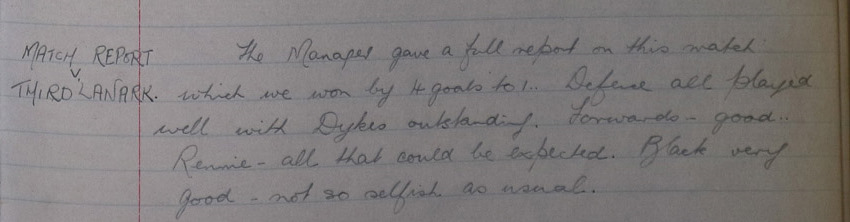 MATCH REPORT The Manager gave a full report on this match
V THIRD LANARK. which we won by 4 goals to 1.. Defence all played
well with Dykes outstanding. Forwards - good..
Rennie - all that could be expected. Black very
good - not so selfish as usual.